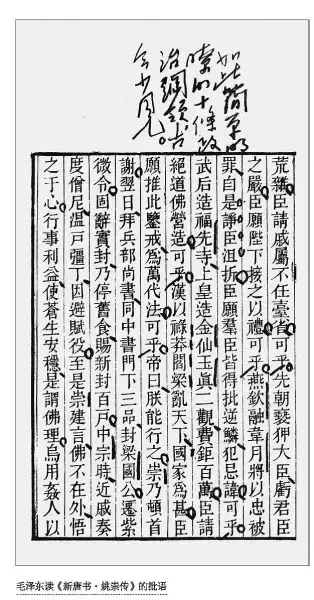 如此簡單明
瞭的十條政
治綱領古
今少見。
荒雜臣請戚屬不任臺省可乎先朝褻狎大臣虧君臣
之嚴臣願陛下接之以禮可乎燕欽融韋月將以忠被
罪自是諍臣沮折臣願羣臣皆得批逆鱗犯忌諱可乎
武后造福先寺上皇造金仙玉真二觀費鉅百萬臣請
絕道佛營造可乎漢以祿莽閻梁亂天下國家爲甚臣
願推此鑒戒爲萬代法可乎帝曰朕能行之崇乃頓首
謝翌日拜兵部尚書同中書門下三品封梁國公遷紫
微令固辭實封乃停舊食賜新封百戶中宗時近戚奏
度僧尼溫戶彊丁因避賦役至是崇建言佛不在外悟
之于心行事利益使蒼生安穩是謂佛理烏用姦人以
毛泽东读《新唐书·姚崇传》的批语